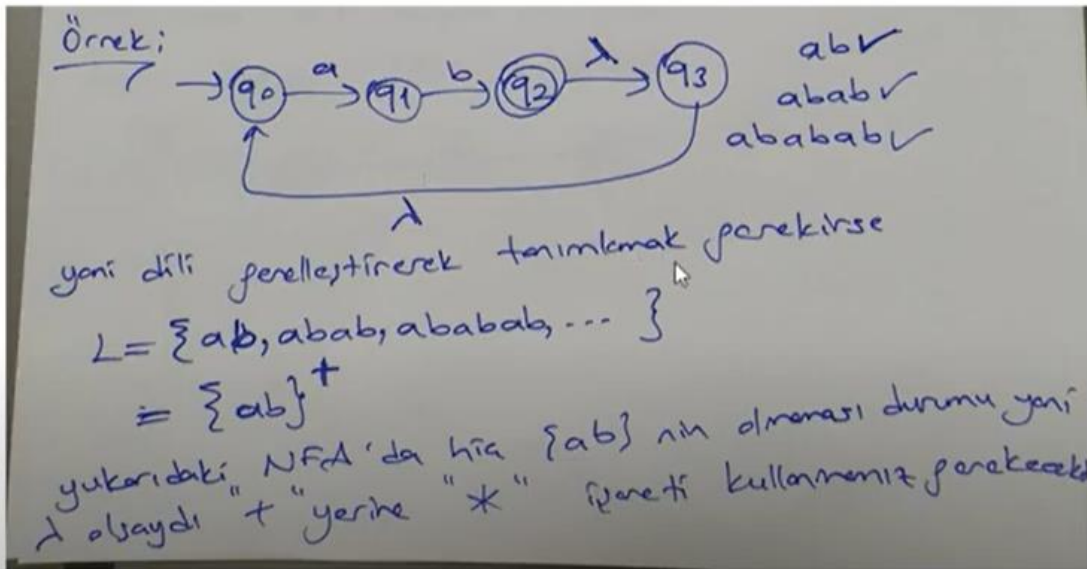 Örnek;
→ q0 a q1 b q2 λ q3
λ
ab✓
abab✓
ababab✓
yani dili genelleştirerek tanımlamak gerekirse
L = {ab, abab, ababab, ... }
= {ab}+
yukarıdaki NFA'da hiç {ab} nin olmaması durumu yani
λ olsaydı "+" yerine "*" işareti kullanmamız gerekecekti